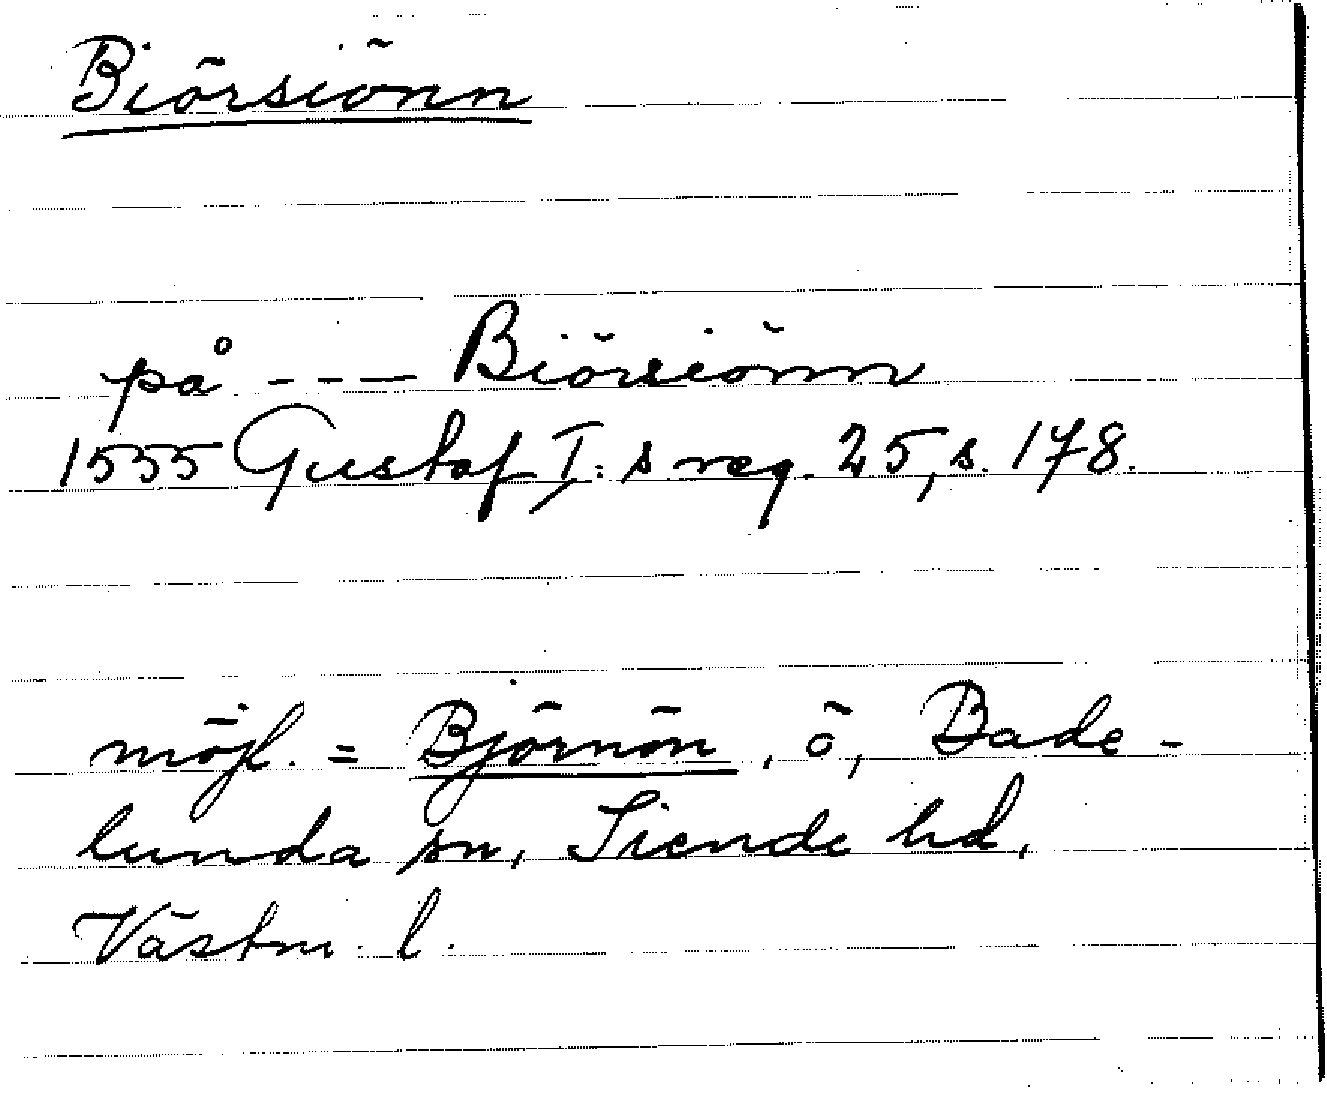 Biörsiönn
på --- Biörsiönn
1555 Gustaf I:s reg. 25, s. 178.
möjl. = Björnön, ö, Bade-
lunda sn, Siende hd,
Västm. l.